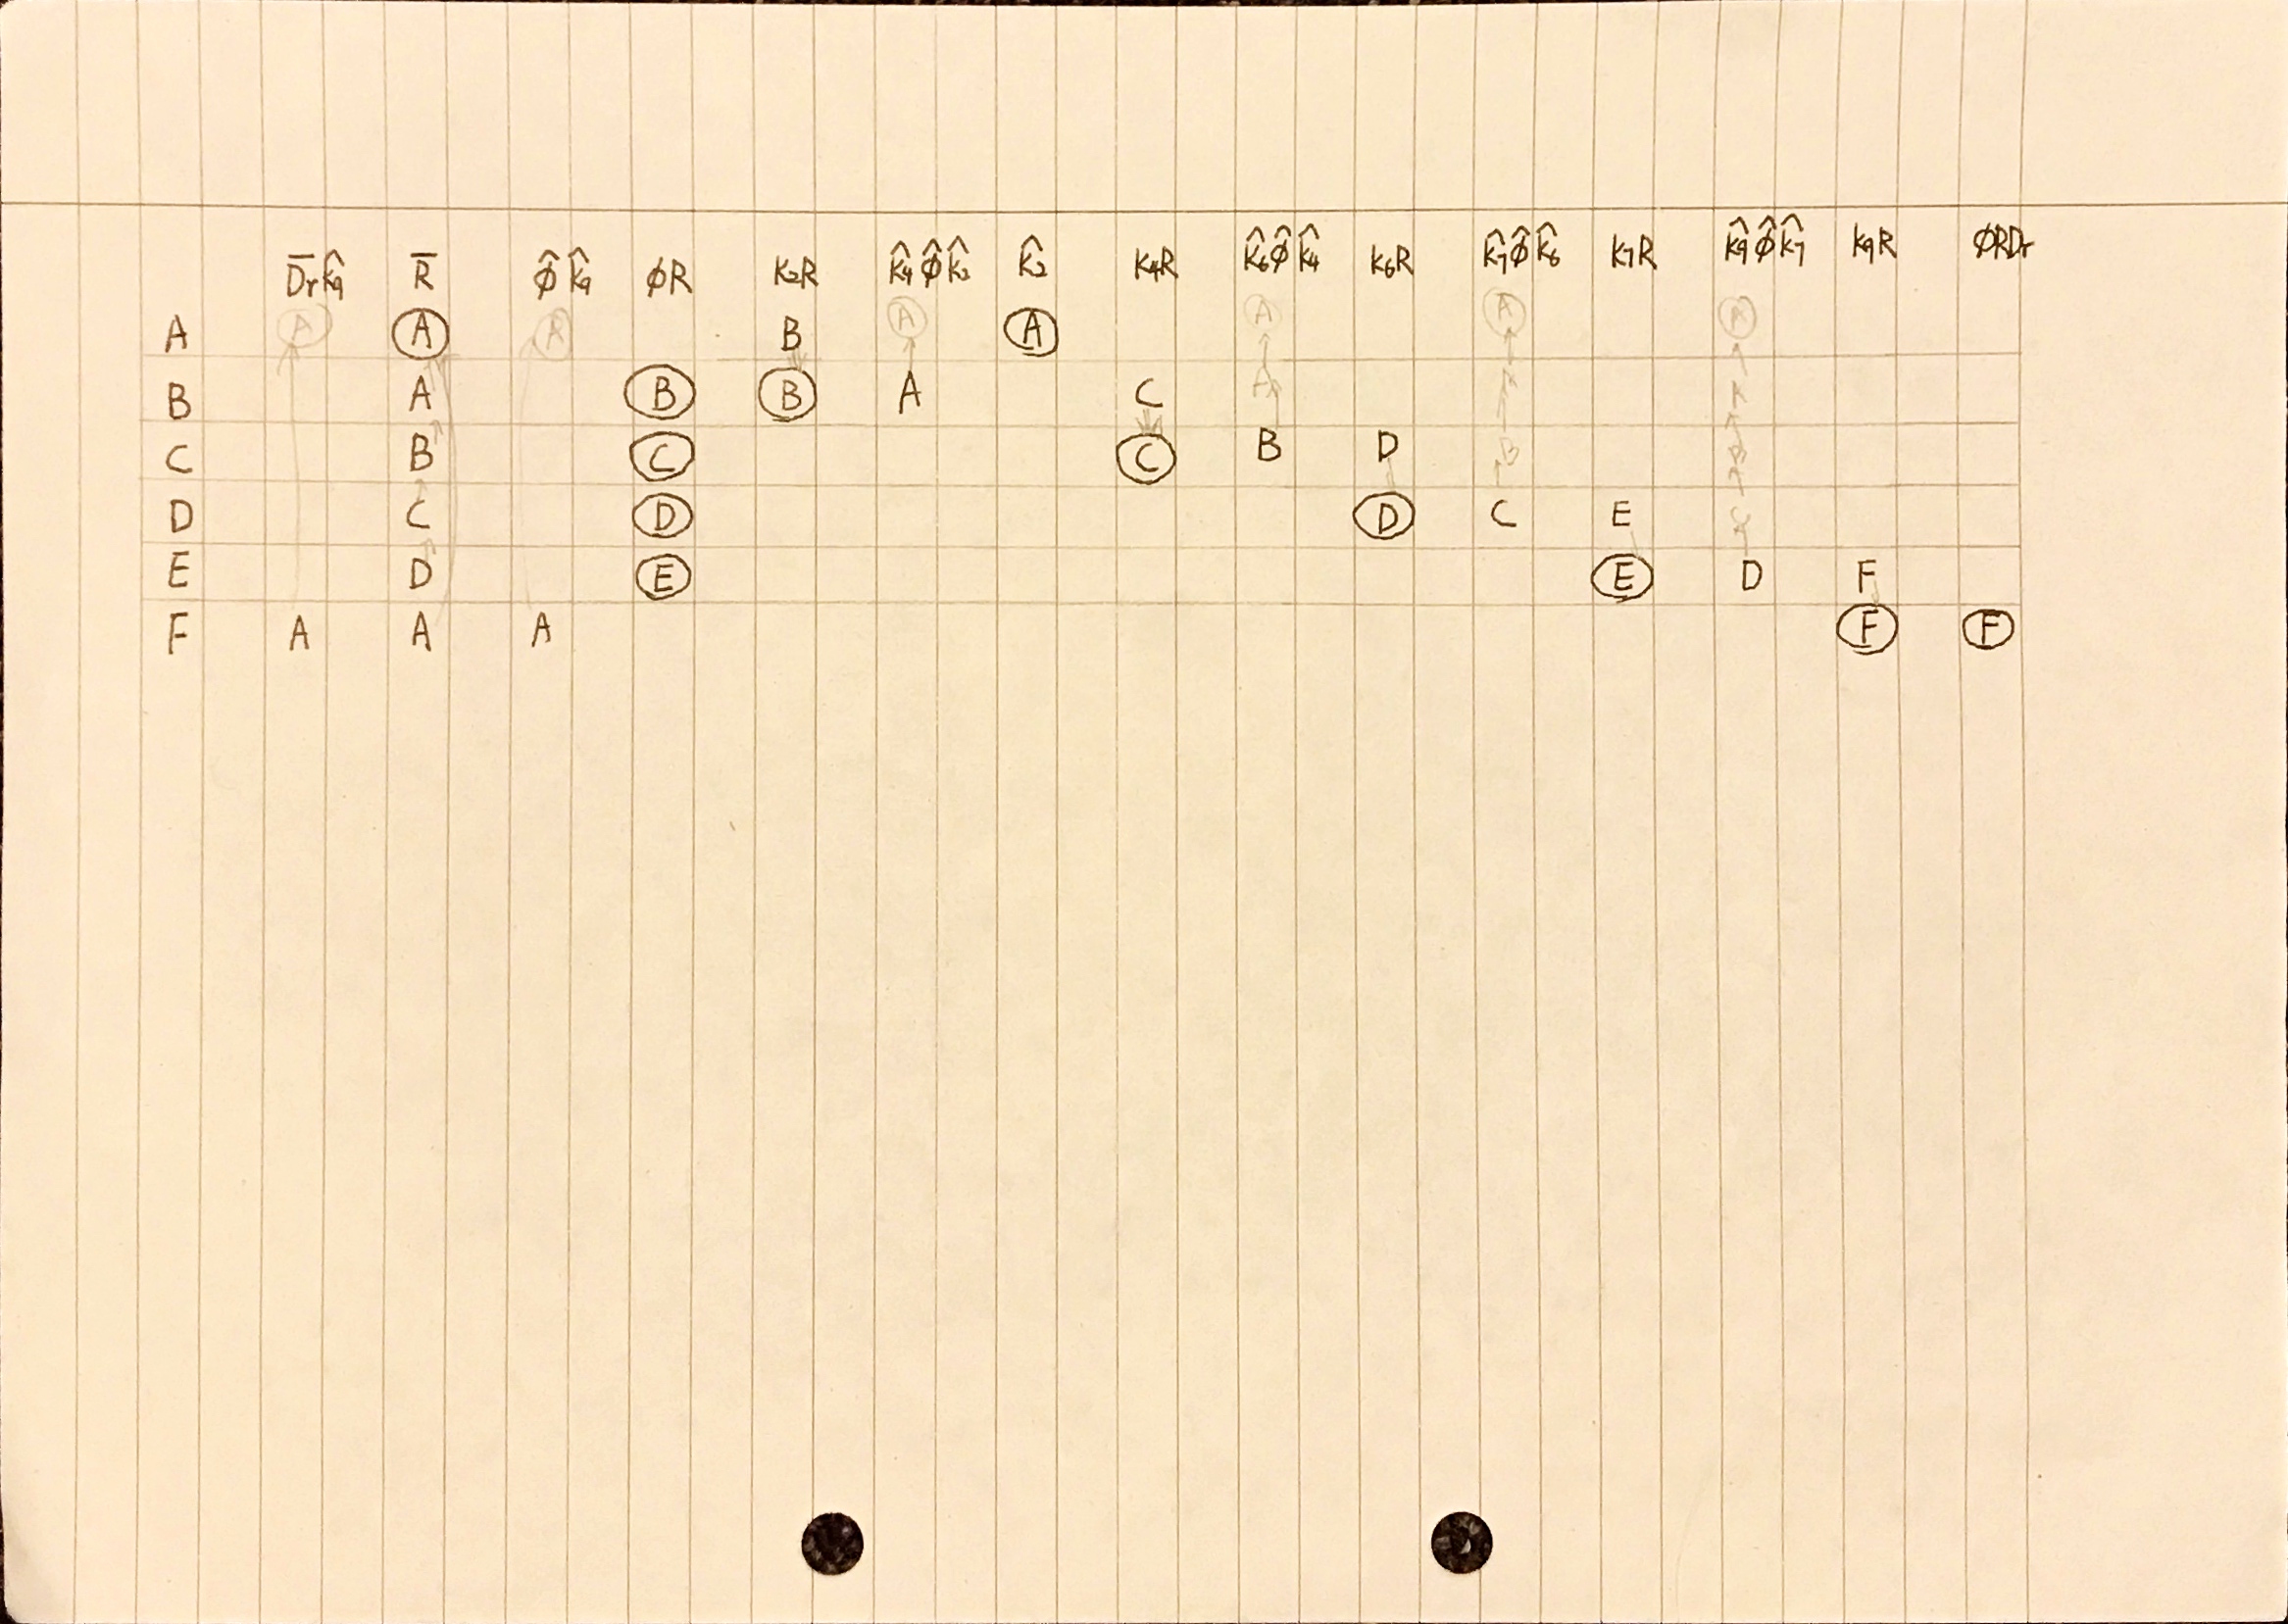 D̅r k̂9 R̅ φ̂ k̂9 φR K2R k̂4 φ̂ k̂2 k̂2 K4R k̂6 φ̂ k̂4 K6R k̂7 φ̂ k̂6 K7R k̂9 φ̂ k̂7 K9R φRDr
A A A A B A A A A A
B A B B A C A
C B C C B D B
D C D D C E C
E D E E D F
F A A A F F